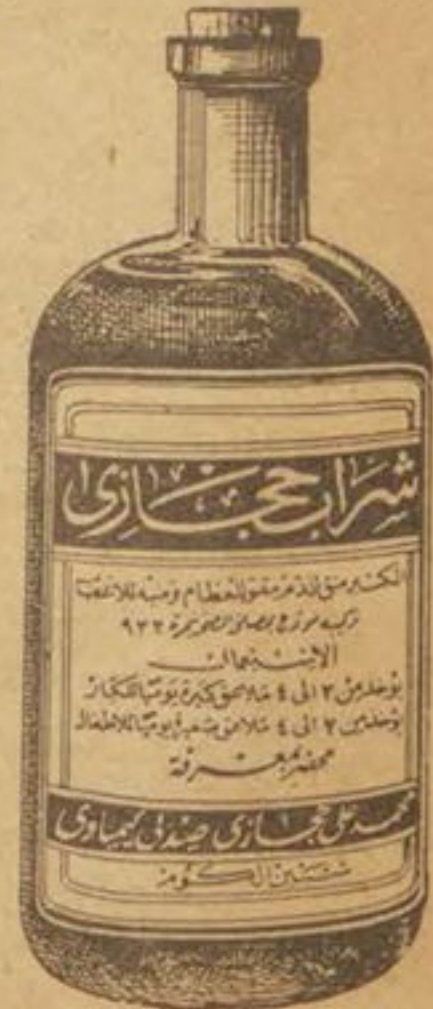 شراب حجازى
منق للدم مقو للعظام ومنبه للاعصاب
تركيبه بمصلحة الصحة نمرة ٩٢٢
الاستعمال
يؤخذ من ٢ الى ٤ ملاعق كبيرة يوميا للكبار
يؤخذ من ٢ الى ٤ ملاعق صغيرة يوميا للاطفال
محضر بمعرفة
محمد على حجازى صيدلى كيماوى
شبين الكوم